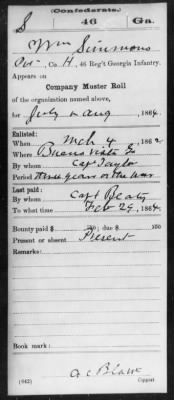 (Confederate.)
S 46 Ga.
Wm Simmons
Pvt, Co. H, 46 Reg't Georgia Infantry.
Appears on
Company Muster Roll
of the organization named above,
for July & Aug, 1864.
Enlisted:
When Mch 4, 1862
Where Buena Vista Ga
By whom Capt Taylor
Period three years or the war
Last paid:
By whom Capt Beaty
To what time Feb 29, 1864.
Bounty paid $ 100; due $ 100
Present or absent Present
Remarks:
Book mark:
(642) Copyist.